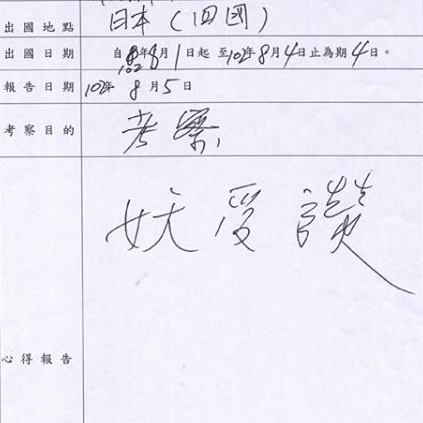 出國地點 日本（四國）
出國日期 自102年8月1日起至102年8月4日止為期4日。
報告日期 102年8月5日
考察目的 考察
妖受讚
心得報告